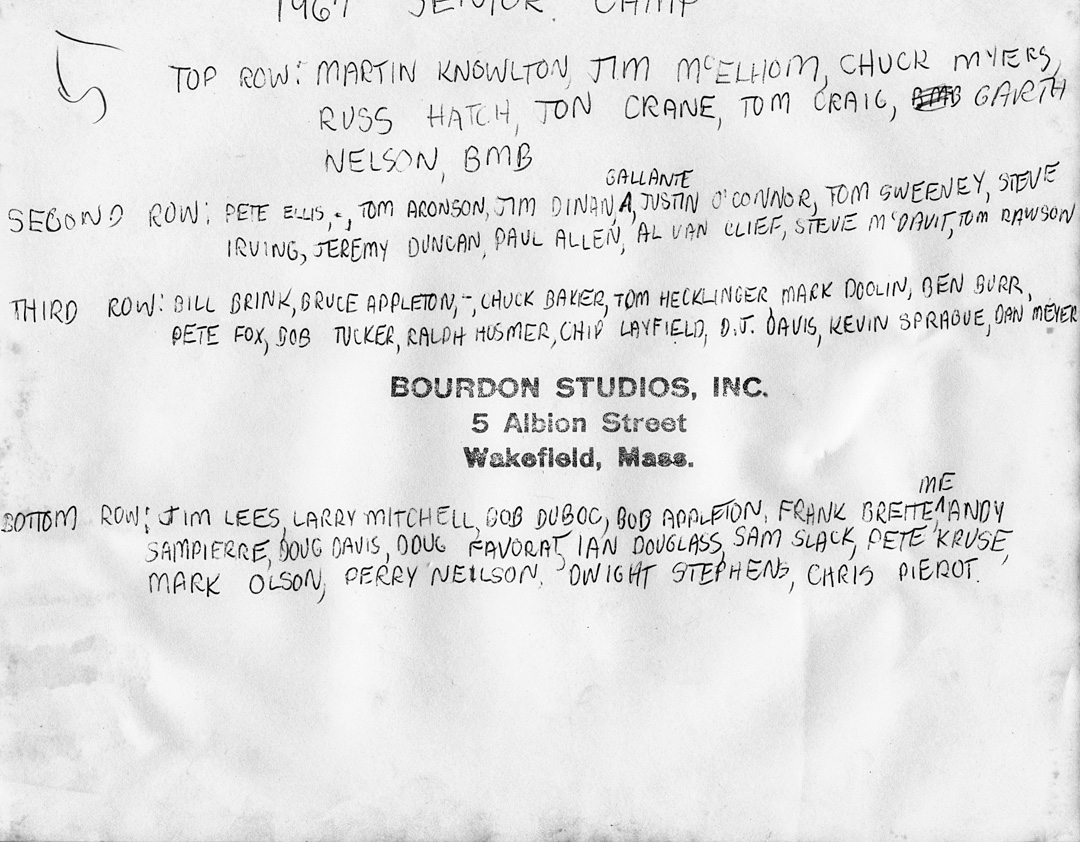 1967 SENIOR CAMP
TOP ROW: MARTIN KNOWLTON, JIM McELHOM, CHUCK MYERS,
RUSS HATCH, JON CRANE, TOM CRAIG, GARTH
NELSON, BMB
GALLANTE
SECOND ROW: PETE ELLIS, -, TOM ARONSON, JIM DINAN, JUSTIN O'CONNOR, TOM SWEENEY, STEVE
IRVING, JEREMY DUNCAN, PAUL ALLEN, AL VAN CLIEF, STEVE McDAVIT, TOM RAWSON
THIRD ROW: BILL BRINK, BRUCE APPLETON, -, CHUCK BAKER, TOM HECKLINGER, MARK DOOLIN, BEN BURR,
PETE FOX, BOB TUCKER, RALPH HOSMER, CHIP LAYFIELD, D.J. DAVIS, KEVIN SPRAGUE, DAN MEYER
BOURDON STUDIOS, INC.
5 Albion Street
Wakefield, Mass.
ME
BOTTOM ROW: JIM LEES, LARRY MITCHELL, BOB DUBOC, BOB APPLETON, FRANK BREITE, ANDY
SAMPIERRE, DOUG DAVIS, DOUG FAVORAT, IAN DOUGLASS, SAM SLACK, PETE KRUSE,
MARK OLSON, PERRY NEILSON, DWIGHT STEPHENS, CHRIS PIEROT.